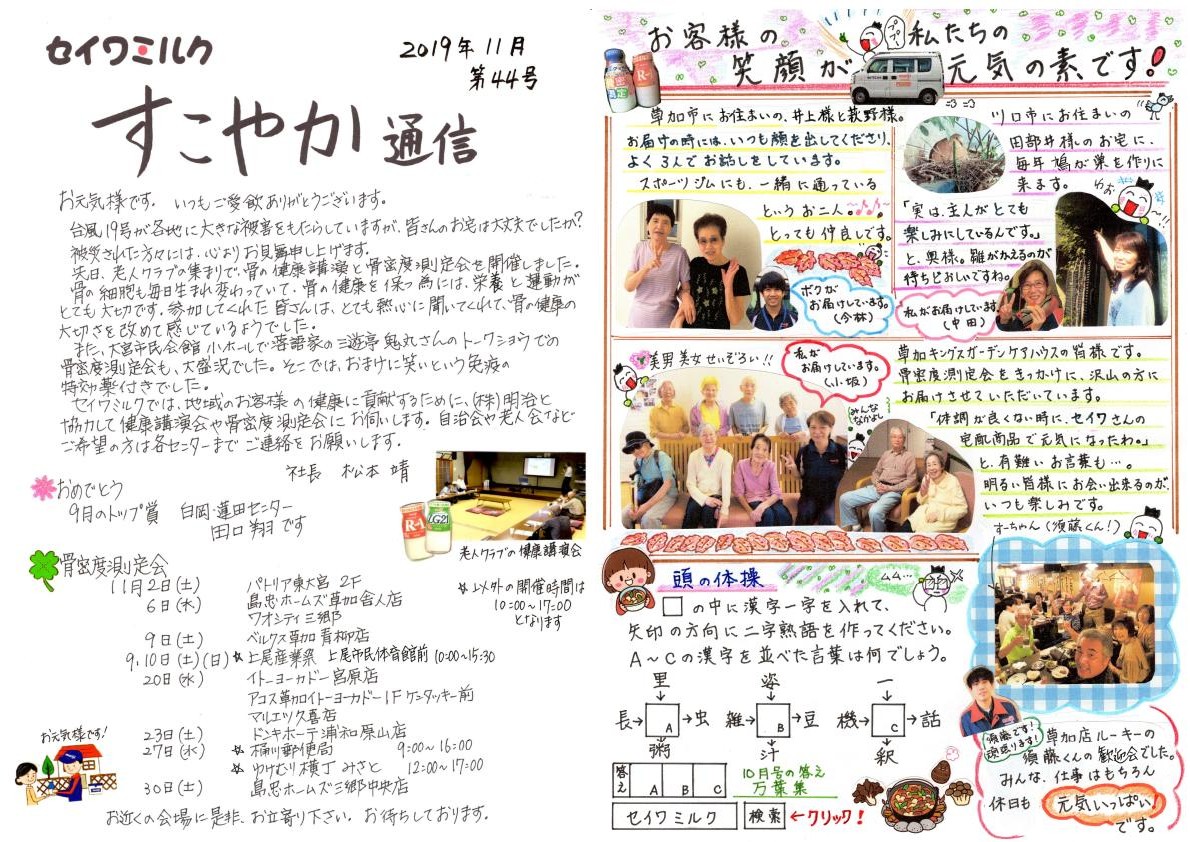 セイワミルク
2019年11月
第44号
すこやか通信
お元気様です。 いつもご愛飲ありがとうございます。
台風19号が各地に大きな被害をもたらしていますが、皆さんのお宅は大丈夫でしたか?
被災された方々には、心よりお見舞申し上げます。
先日、老人クラブの集まりで、骨の健康講演と骨密度測定会を開催しました。
骨の細胞も毎日生まれ変わっていて、骨の健康を保つ為には、栄養と運動が
とても大切です。参加してくれた皆さんは、とても熱心に聞いてくれて、骨の健康の
大切さを改めて感じているようでした。
また、大宮市民会館 小ホールで落語家の三遊亭 鬼丸さんのトークショウでの
骨密度測定会も、大盛況でした。そこでは、おまけに笑いという免疫の
特効薬付きでした。
セイワミルクでは、地域のお客様の健康に貢献するために、(株)明治と
協力して健康講演会や骨密度測定会にお伺いします。自治会や老人会など
ご希望の方は各センターまでご連絡をお願いします。
社長 松本 靖
おめでとう
9月のトップ賞 白岡・蓮田センター
田口 翔です
R-1
LG21
老人クラブの健康講演会
骨密度測定会
11月2日(土) パトリア東大宮 2F
6日(水) 島忠ホームズ草加舎人店
ワオシティ三郷
9日(土) ベルクス草加 青柳店
9.10日(土)(日) ☆上尾産業祭 上尾市民体育館前 10:00~15:30
20日(水) イトーヨーカドー宮原店
アコス草加イトーヨーカドー1F ケンタッキー前
マルエツ久喜店
23日(土) ドンキホーテ浦和原山店
27日(水) ☆桶川郵便局 9:00~16:00
☆ゆけむり横丁 みさと 12:00~17:00
30日(土) 島忠ホームズ三郷中央店
☆以外の開催時間は
10:00~17:00
となります
お元気様です!
お近くの会場に是非、お立寄り下さい。お待ちしております。
お客様の
笑顔が
私たちの
元気の素です!
R-1
草加市にお住まいの、井上様と萩野様。
お届けの時には、いつも顔を出してくださり、
よく3人でお話しをしています。
スポーツジムにも、一緒に通っている
というお二人。
とっても仲良しです。
ボクが
お届けしています。
(今林)
川口市にお住まいの
田部井様のお宅に、
毎年鳩が巣を作りに
来ます。
「実は、主人がとても
楽しみにしているんです。」
と、奥様。雛がかえるのが
待ちどおしいですね。
私がお届けしています
(中田)
美男美女せいぞろい!!
私が
お届けしています。
(小坂)
みんな
なかよし
草加キングスガーデンケアハウスの皆様です。
骨密度測定会をきっかけに、沢山の方に
お届けさせていただいています。
「体調が良くない時に、セイワさんの
宅配商品で元気になったわ。」
と、有難いお言葉も…。
明るい皆様にお会い出来るのが、
いつも楽しみです。
すーちゃん(須藤くん!)
頭の体操
ムム…
□の中に漢字一字を入れて、
矢印の方向に二字熟語を作ってください。
A~Cの漢字を並べた言葉は何でしょう。
里 姿 一
↓ ↓ ↓
長→A→虫 雑→B→豆 機→C→話
↓ ↓ ↓
粥 汁 釈
答え A B C
10月号の答え
万葉集
セイワミルク 検索 ←クリック!
須藤です!
頑張ります!
草加店ルーキーの
須藤くんの歓迎会でした。
みんな、仕事はもちろん
休日も 元気いっぱい!
です。